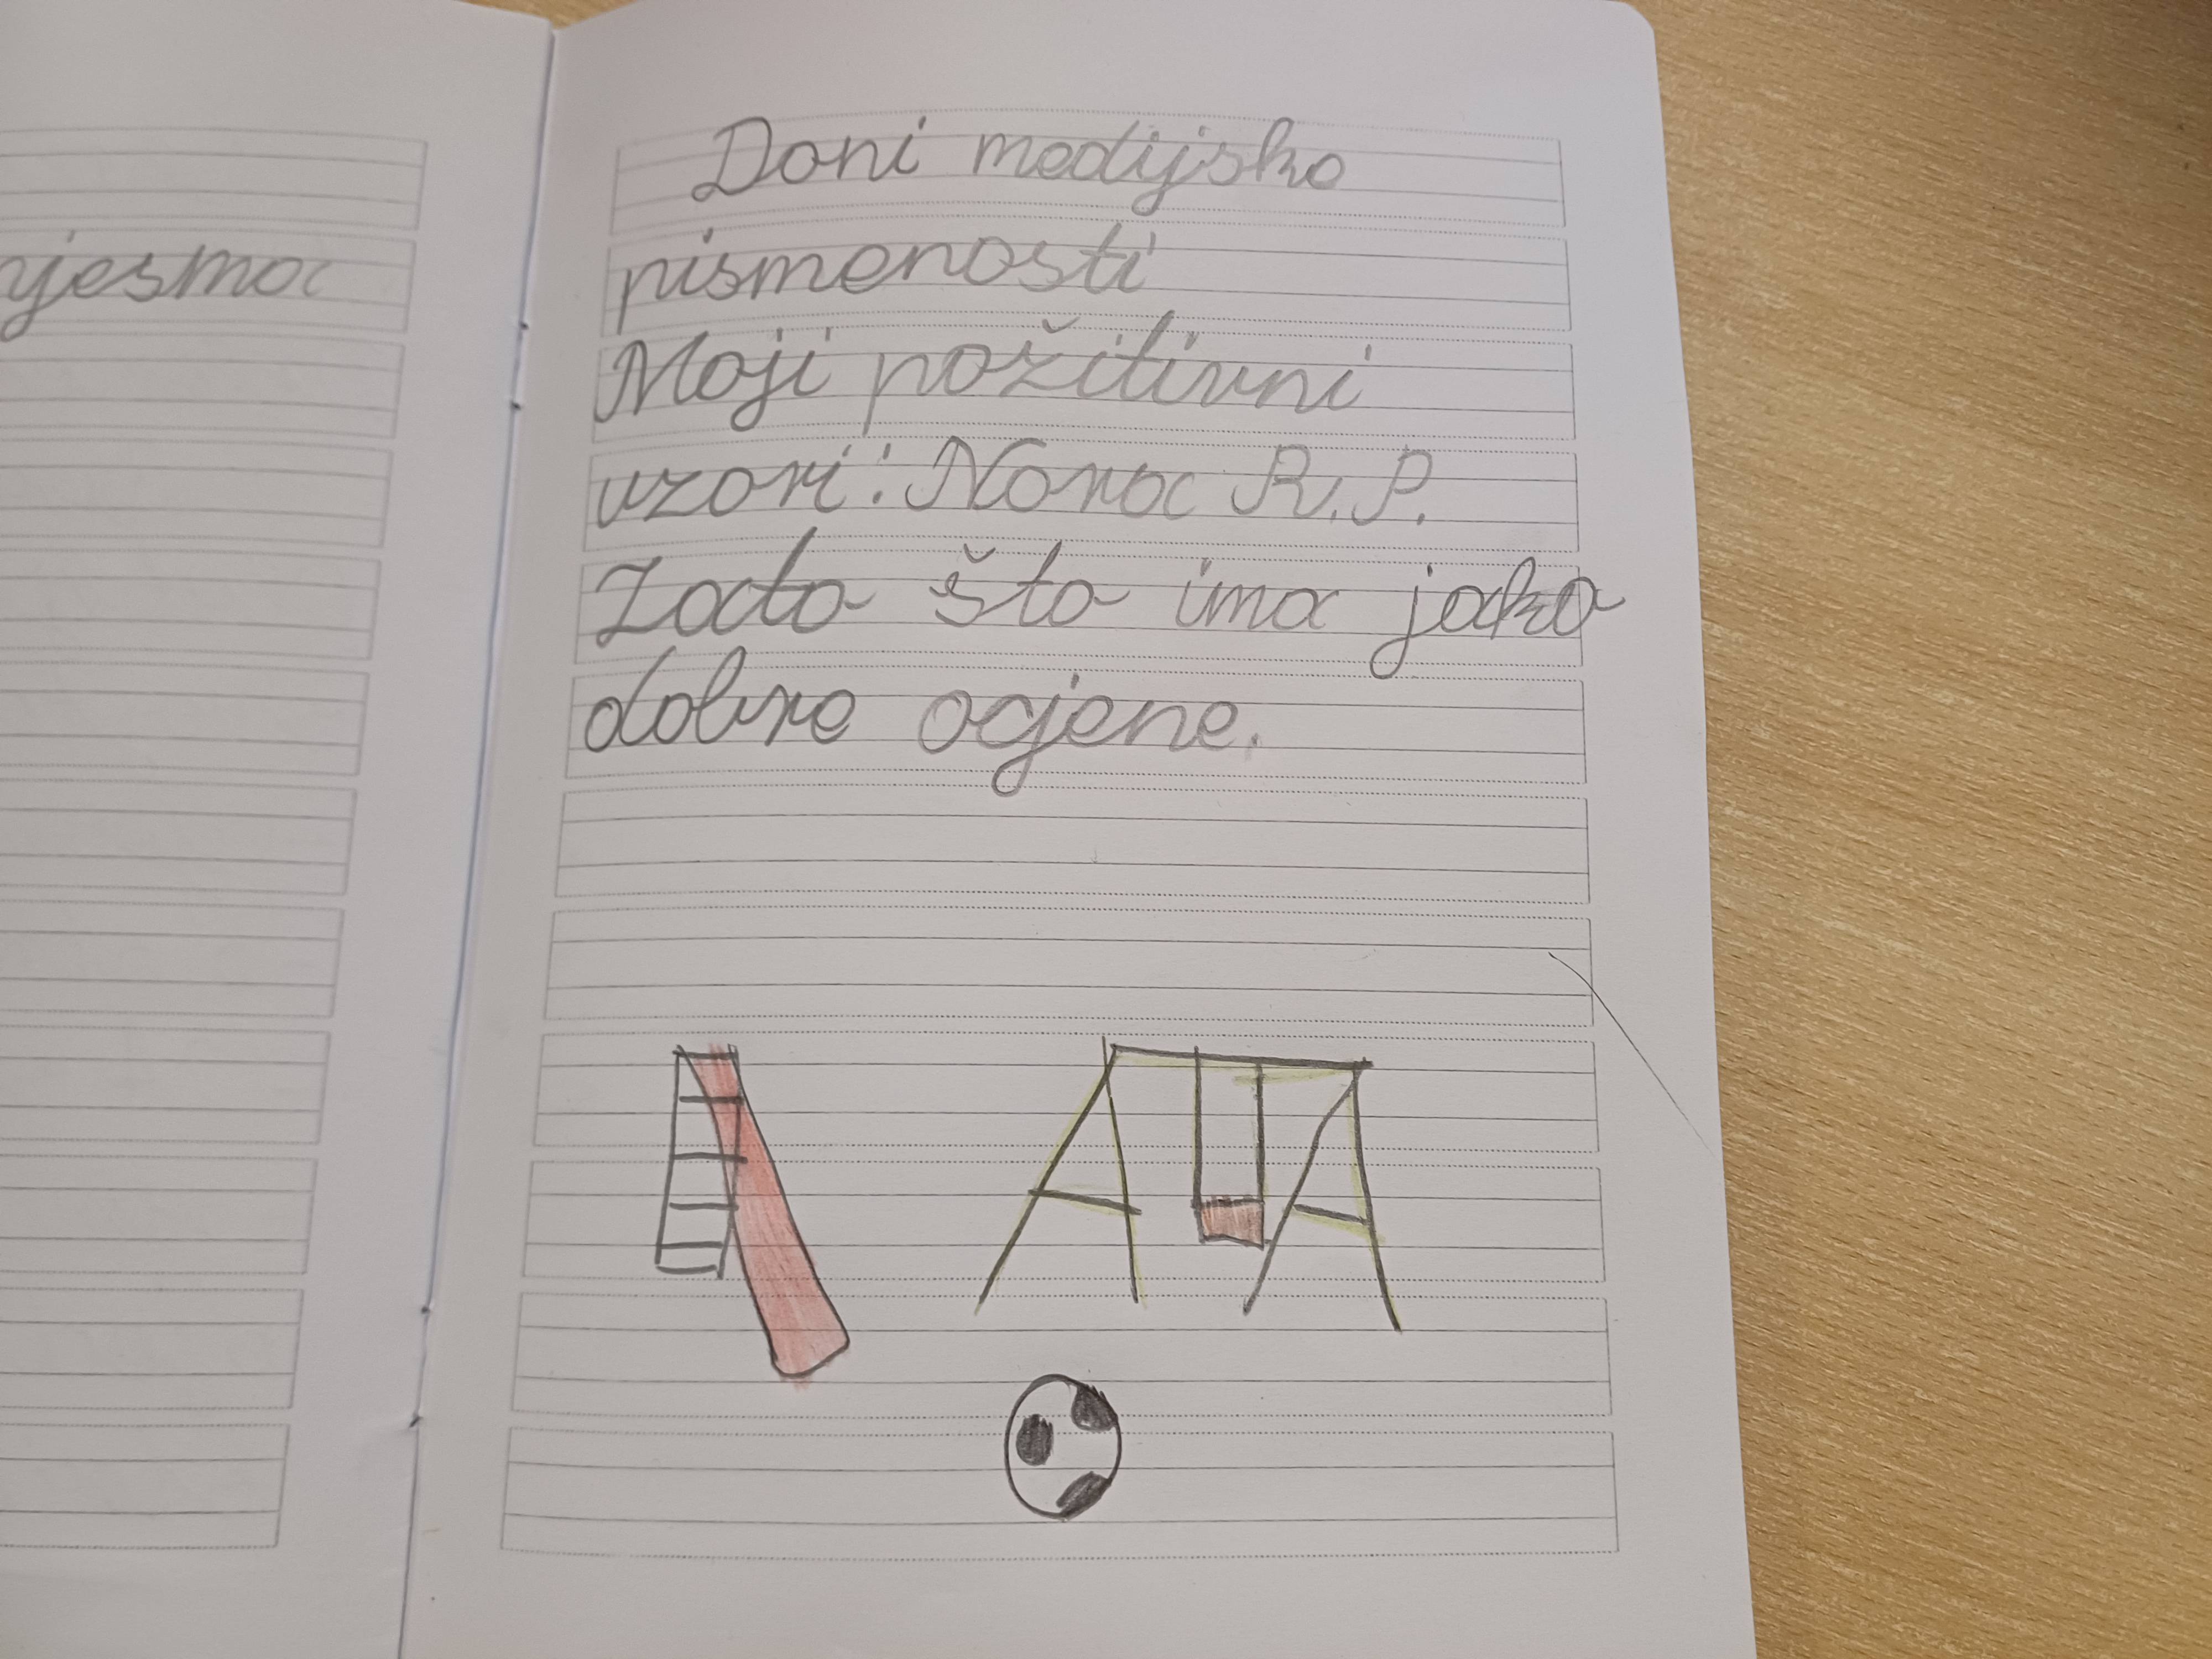 njesma
Dani medijske
pismenosti
Moji požitivni
uzori: Nora R. P.
Zato što ima jako
dobre ocjene.